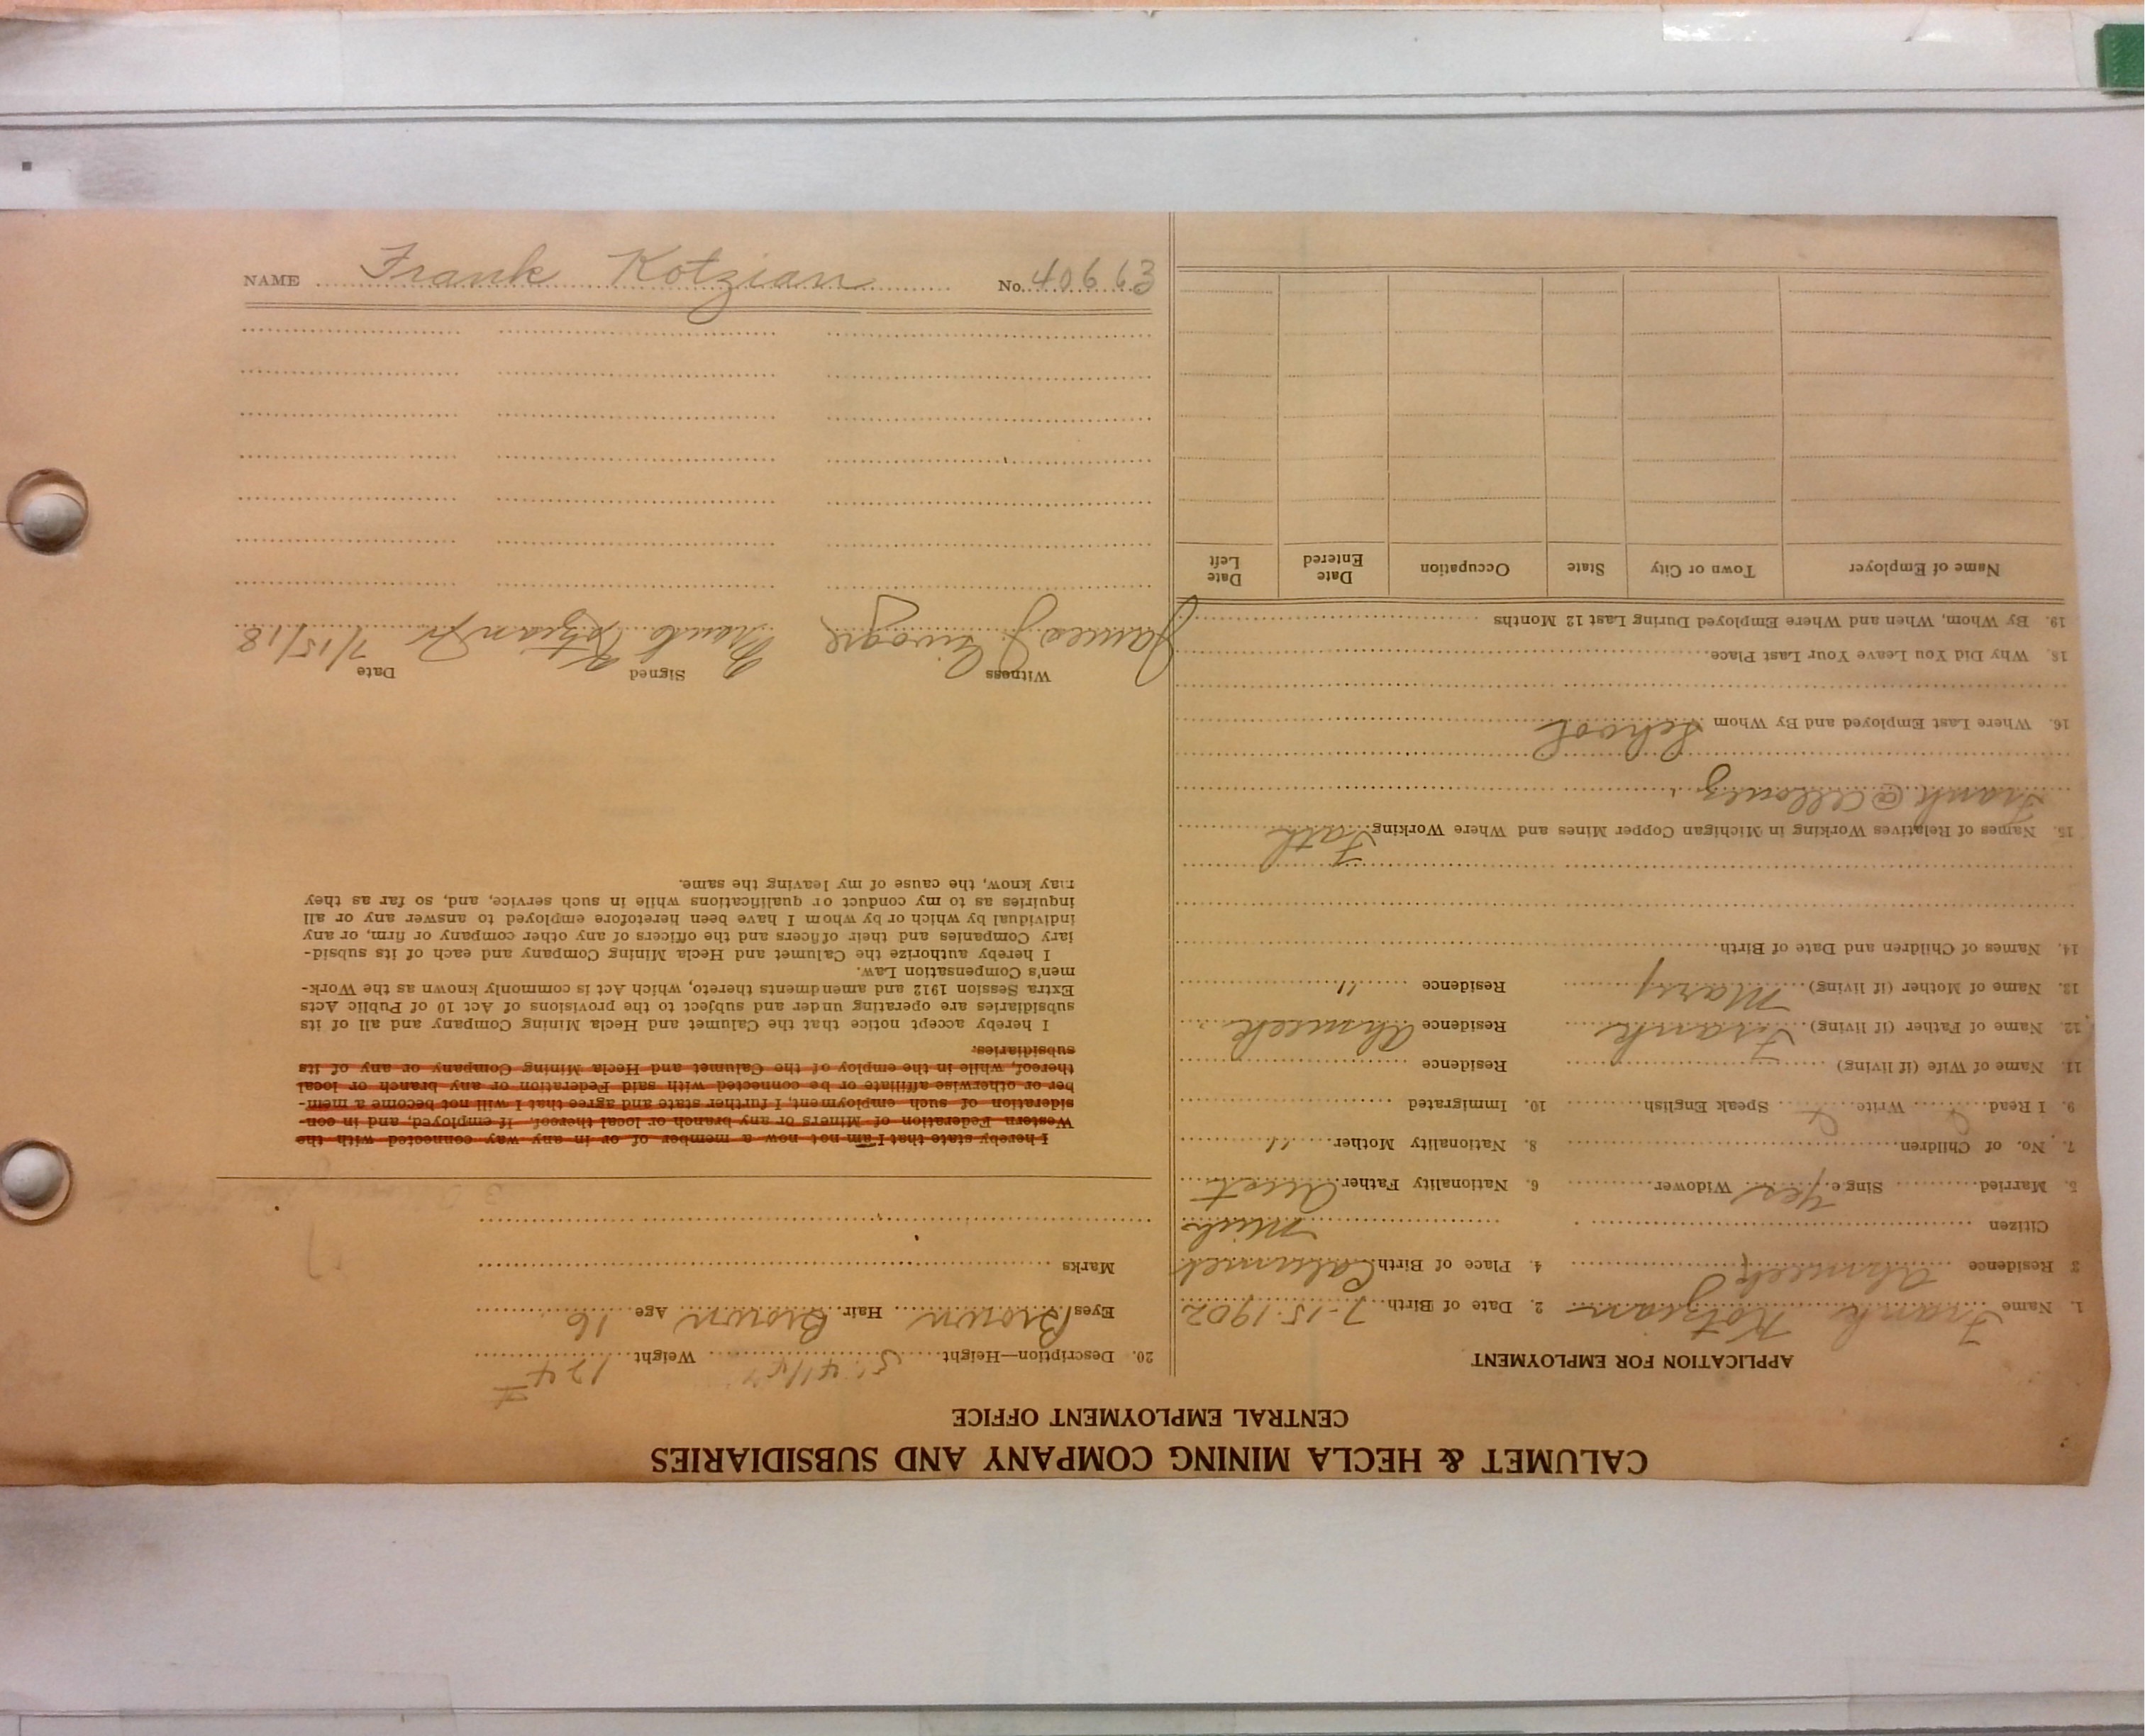 CALUMET & HECLA MINING COMPANY AND SUBSIDIARIES
CENTRAL EMPLOYMENT OFFICE
APPLICATION FOR EMPLOYMENT
1. Name Frank Kotzian 2. Date of Birth 7-15-1902
3 Residence Ahmeek 4. Place of Birth Calumet
Citizen Mich
5. Married Single yes Widower 6. Nationality Father Aust
7. No. of Children 8. Nationality Mother "
9. I Read Write Speak English 10. Immigrated
11. Name of Wife (if living) Residence
12. Name of Father (if living) Frank Residence Ahmeek
13. Name of Mother (if living) Mary Residence "
14. Names of Children and Date of Birth
15. Names of Relatives Working in Michigan Copper Mines and Where Working Fath
Frank @ Allouez
16. Where Last Employed and By Whom School
18. Why Did You Leave Your Last Place
19. By Whom, When and Where Employed During Last 12 Months
Name of Employer Town or City State Occupation Date Entered Date Left
20. Description—Height 5' 4 1/4" Weight 124 #
Eyes Brown Hair Brown Age 16
Marks
I hereby state that I am not now a member of or in any way connected with the
Western Federation of Miners or any branch or local thereof. If employed, and in con-
sideration of such employment, I further state and agree that I will not become a mem-
ber or otherwise affiliate or be connected with said Federation or any branch or local
thereof, while in the employ of the Calumet and Hecla Mining Company or any of its
subsidiaries.
I hereby accept notice that the Calumet and Hecla Mining Company and all of its
subsidiaries are operating under and subject to the provisions of Act 10 of Public Acts
Extra Session 1912 and amendments thereto, which Act is commonly known as the Work-
men's Compensation Law.
I hereby authorize the Calumet and Hecla Mining Company and each of its subsid-
iary Companies and their officers and the officers of any other company or firm, or any
individual by which or by whom I have been heretofore employed to answer any or all
inquiries as to my conduct or qualifications while in such service, and, so far as they
may know, the cause of my leaving the same.
Witness Signed Date
James J Frank Kotzian Jr 7/15/18
NAME Frank Kotzian No. 40663